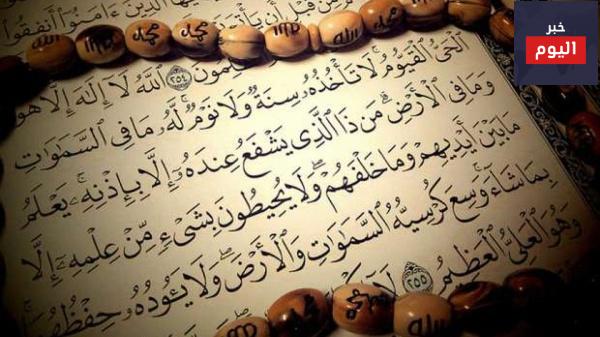 خبر
اليوم
الَّذِينَ ءَامَنُوٓا۟ أَنفِقُوا۟
مِّن قَبْلِ أَن
ٱللَّهُ لَآ إِلَٰهَ إِلَّا هُوَ ٢٥٤
ٱلْحَىُّ ٱلْقَيُّومُ ۚ لَا تَأْخُذُهُۥ سِنَةٌ وَلَا نَوْمٌ ۚ لَّهُۥ مَا فِى ٱلسَّمَٰوَٰتِ
وَمَا فِى ٱلْأَرْضِ ۗ مَن ذَا ٱلَّذِى يَشْفَعُ عِندَهُۥٓ إِلَّا بِإِذْنِهِۦ ۚ يَعْلَمُ
مَا بَيْنَ أَيْدِيهِمْ وَمَا خَلْفَهُمْ ۖ وَلَا يُحِيطُونَ بِشَىْءٍ مِّنْ عِلْمِهِۦٓ إِلَّا
بِمَا شَآءَ ۚ وَسِعَ كُرْسِيُّهُ ٱلسَّمَٰوَٰتِ وَٱلْأَرْضَ ۖ وَلَا يَـُٔودُهُۥ حِفْظُهُمَا
وَهُوَ ٱلْعَلِىُّ ٱلْعَظِيمُ ٢٥٥ لَآ
الله
محمد
محمد
الله
الله